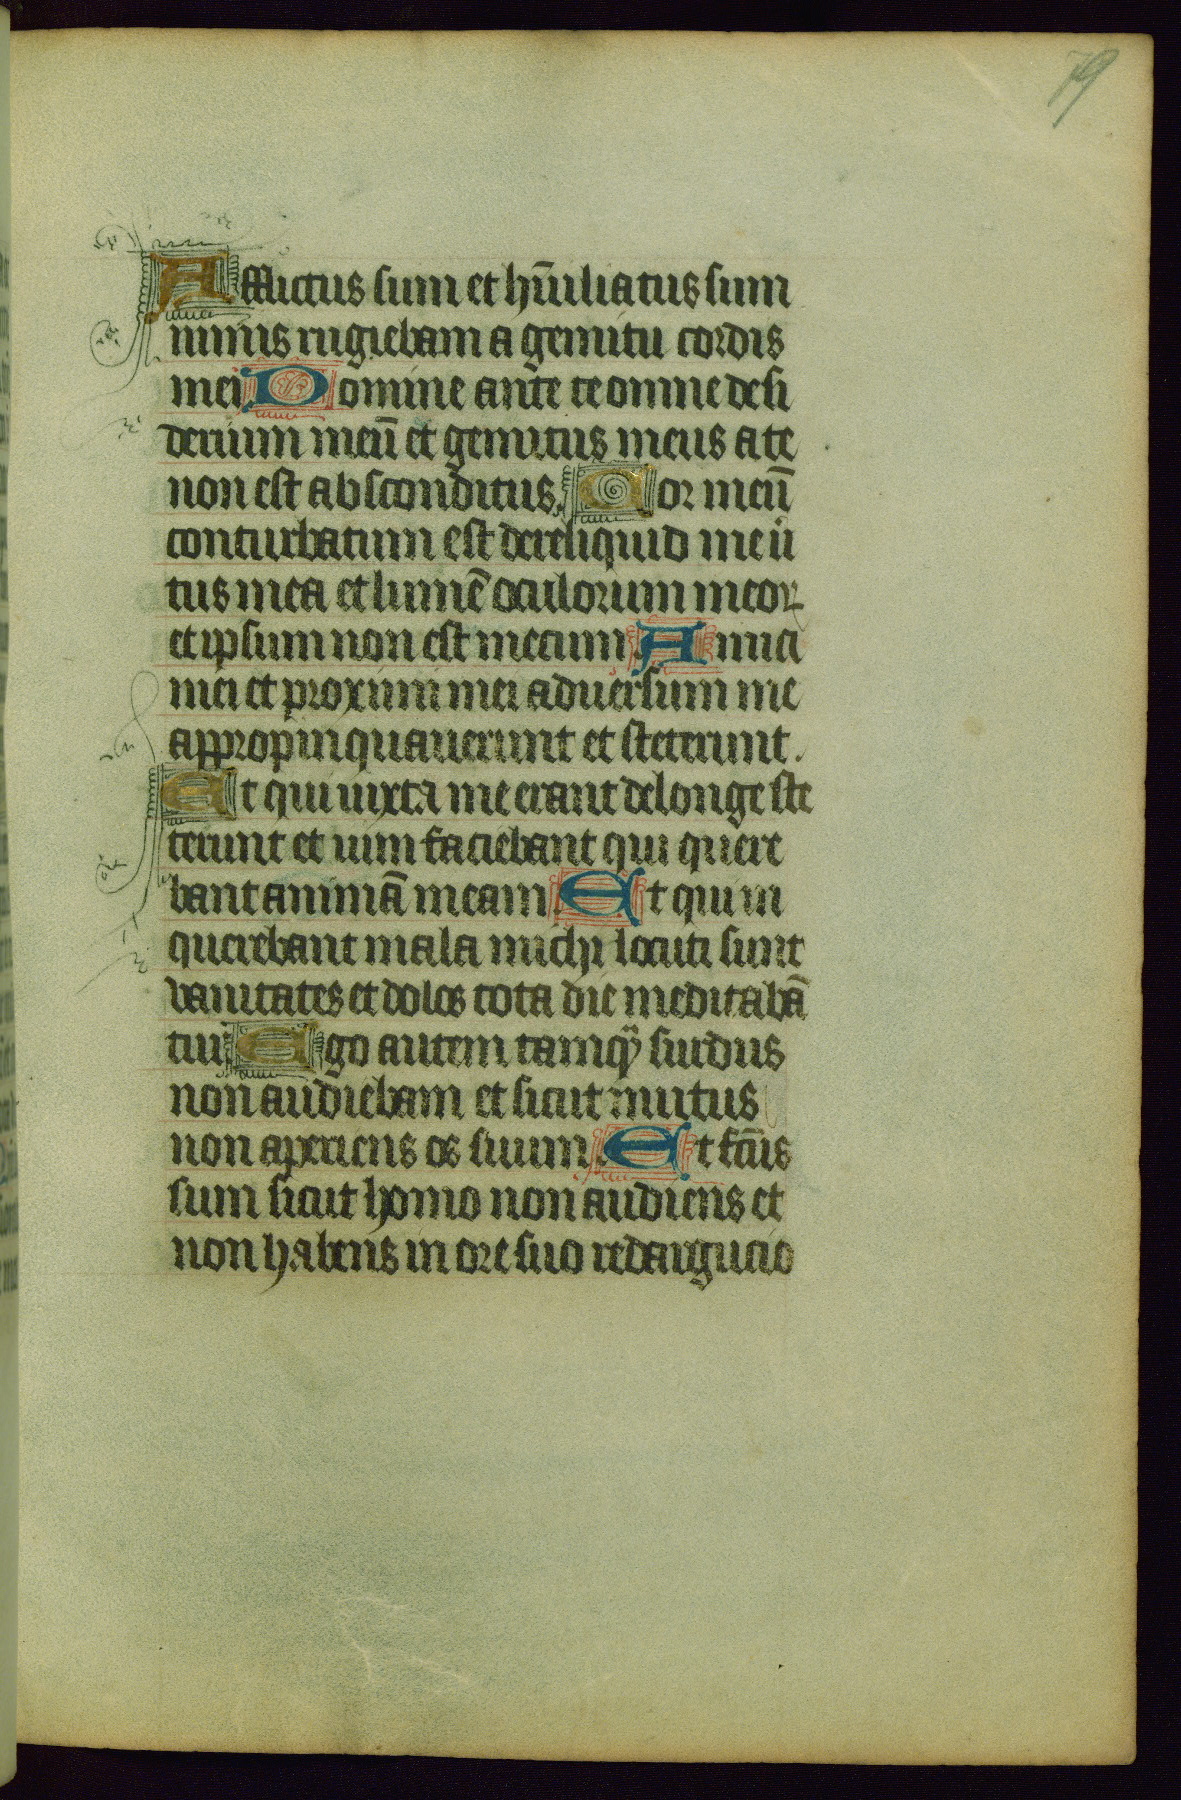 79
Afflictus sum et hūiliatus sum
nimis rugiebam a gemitu cordis
mei Domine ante te omne desi
derium meū et gemitus meus a te
non est absconditus. Cor meū
conturbatum est dereliquid me uir
tus mea et lumē oculorum meoꝝ
et ipsum non est mecum. Amici
mei et proximi mei aduersum me
appropinquauerunt et steterunt.
Et qui iuxta me erant de longe ste
terunt et uim faciebant qui quere
bant animā meam. Et qui in
quirebant mala michi locuti sunt
vanitates et dolos tota die meditabā
tur Ego autem tamqͣ surdus
non audiebam et sicut mutus
non aperiens os suum. Et fc̄us
sum sicut homo non audiens et
non habens in ore suo redargucio